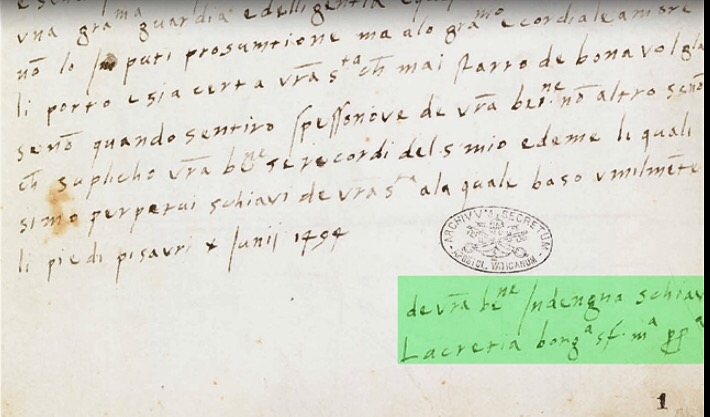 vna gra ma guardia e delligentia
nō lo inputi prosumtione ma alo gra mo e cordiale amore
li porto e sia certa vr̃a s ta ch̃ mai starro de bona volgla
senō quando sentiro spesso nove de vr̃a be ne nō altro senō
ch̃ suplicho vr̃a be ne se recordi del s mio e de me li quali
simo perpetui schiavi de vr̃a s ta ala quale baso vmilmēte
li piedi pisauri x Junij 1494
ARCHIVVM SECRETVM
APOSTOL. VATICANUM
de vr̃a be ne Indengna schiav
Lucretia borg a sf. m a
1